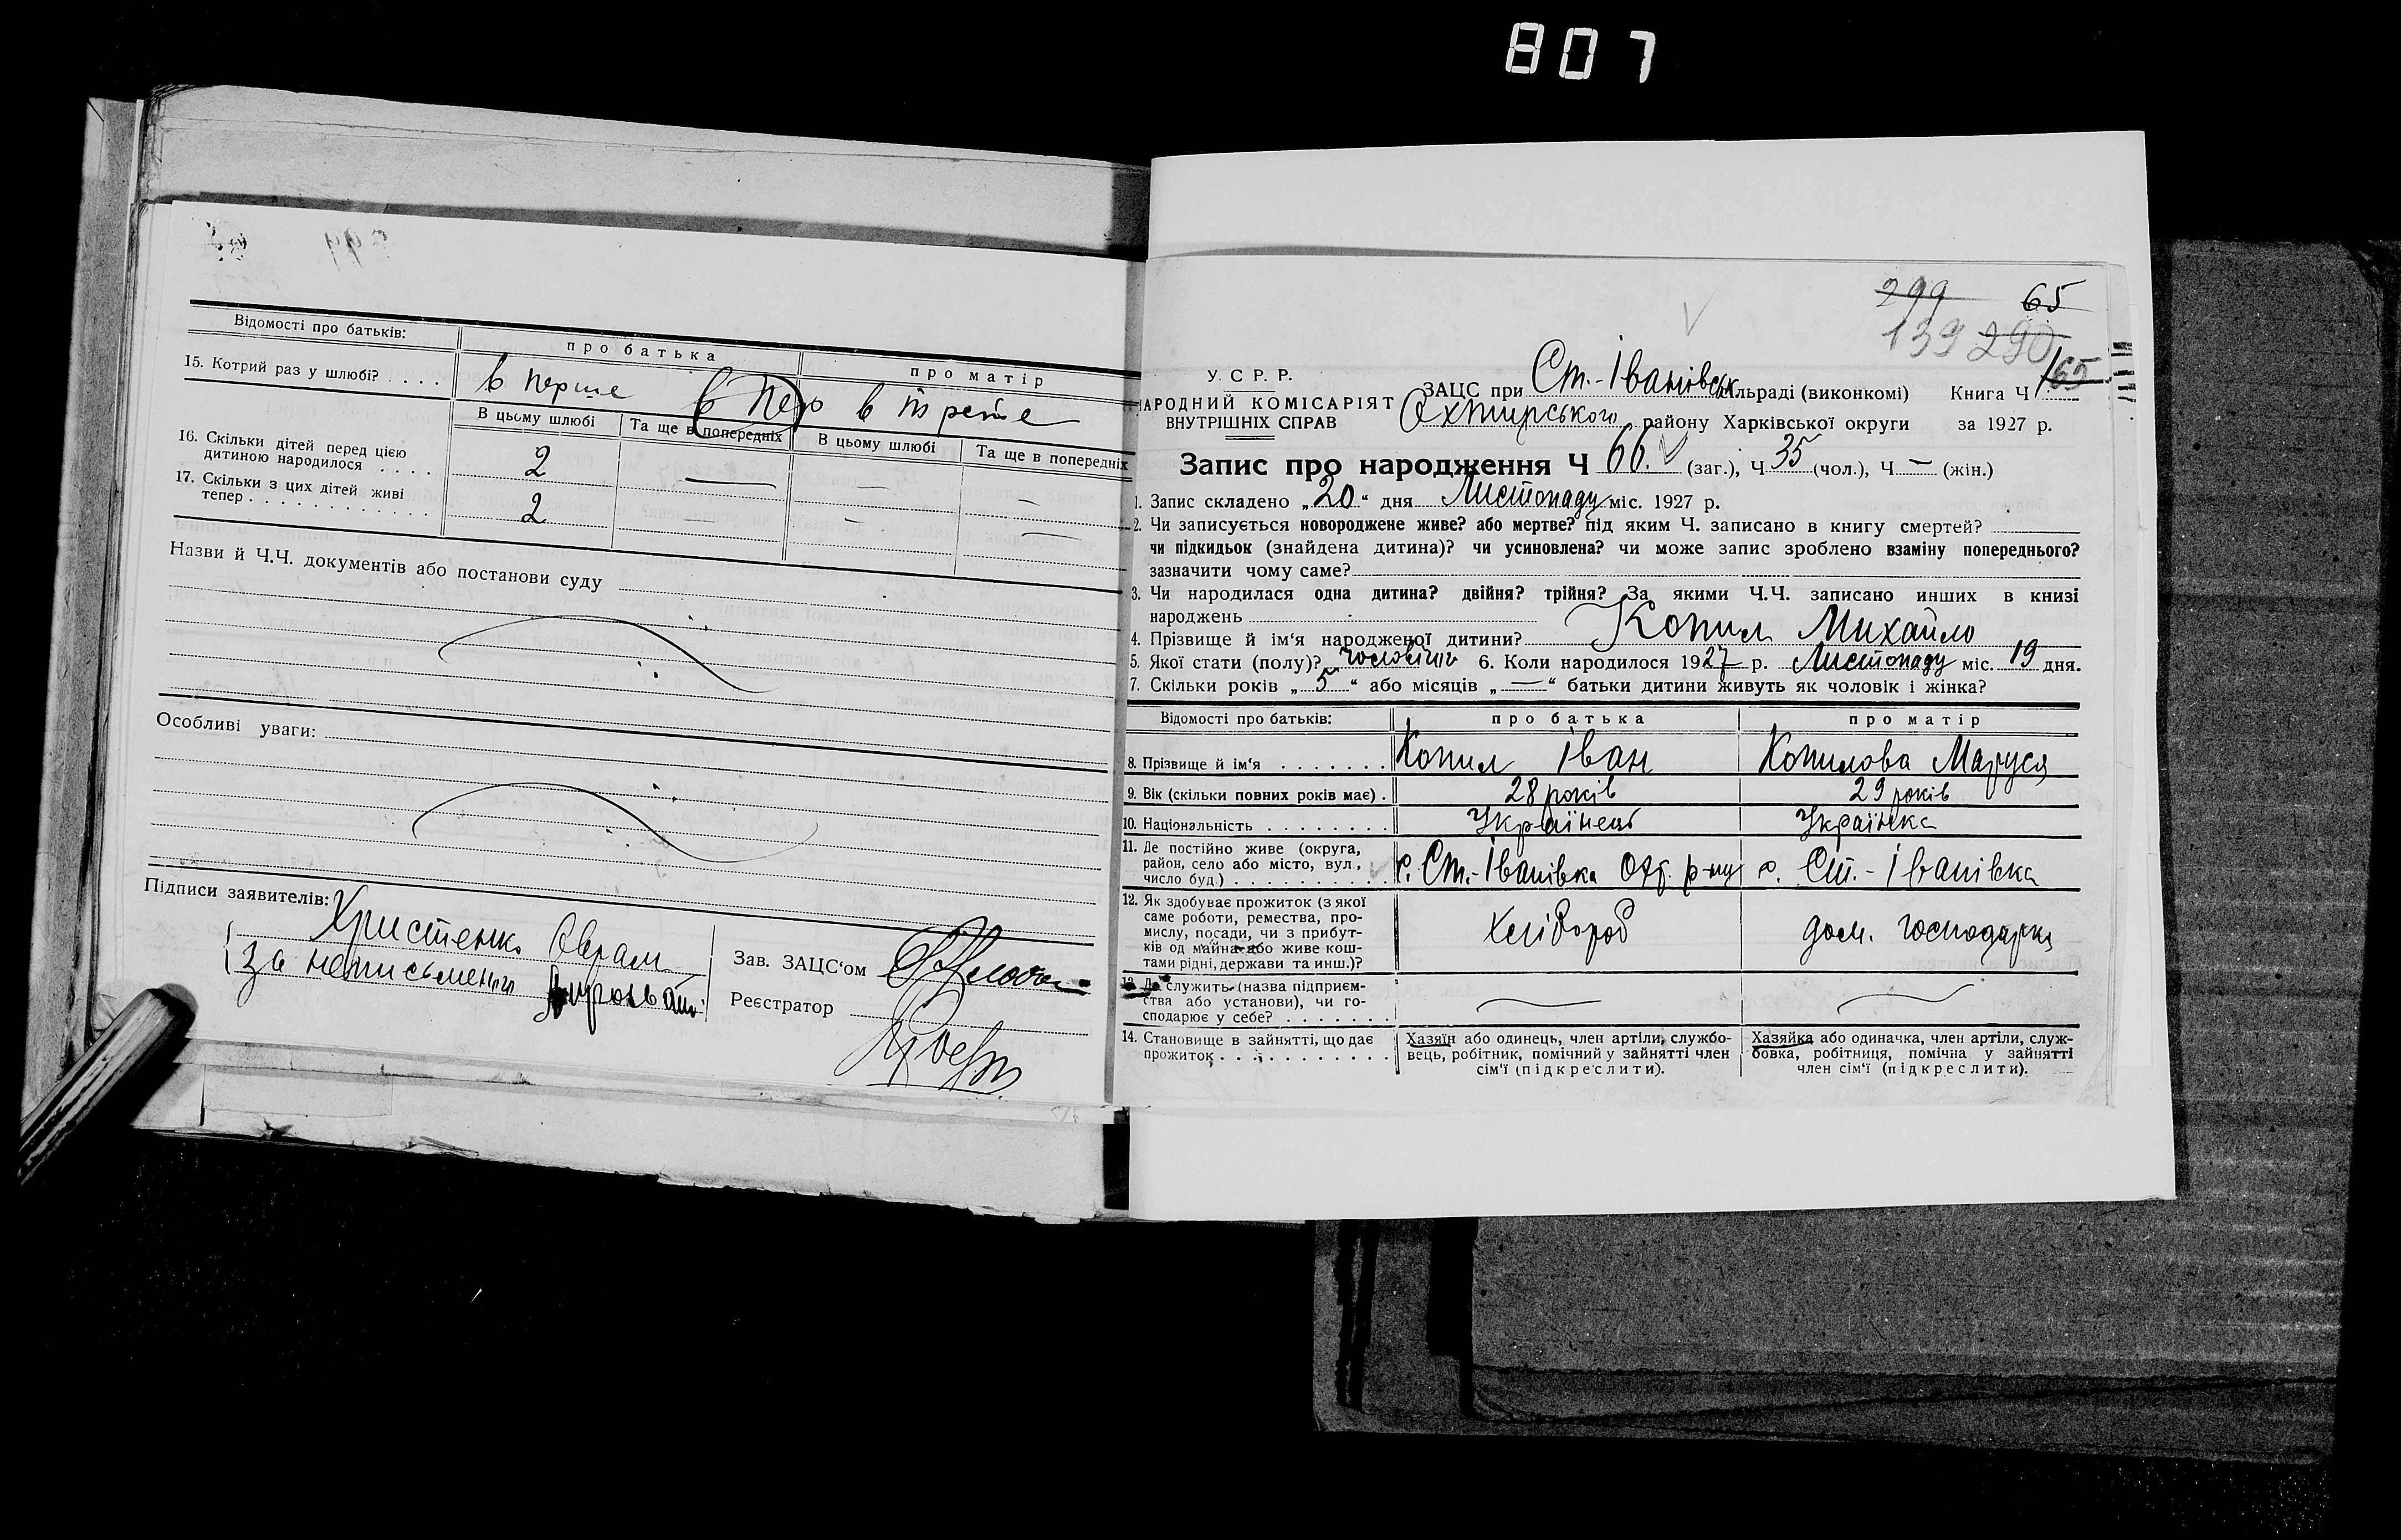 807
Відомості про батьків:
про батька
про матір
15. Котрий раз у шлюбі? . . . .
в перше
в пер
в перше
В цьому шлюбі
Та ще в попередніх
В цьому шлюбі
Та ще в попередніх
16. Скільки дітей перед цією
дитиною народилося . . . .
2 — — —
17. Скільки з цих дітей живі
тепер . . . . . . . . . . . . .
2 — —
Назви й Ч.Ч. документів або постанови суду
Особливі уваги:
Підписи заявителів:
Христенко Оврам
за неписьменого
Зав. ЗАЦС‘ом
Реєстратор
299 65
139 290
У. С Р. Р.
АРОДНИЙ КОМІСАРІЯТ
ВНУТРІШНІХ СПРАВ
ЗАЦС при Ст.-Іванівськ ільраді (виконкомі) Книга Ч 1
65
Охтирського району Харківської округи за 1927 р.
Запис про народження Ч 66. (заг.), Ч 35 (чол.), Ч — (жін.)
1. Запис складено „20“ дня Листопаду міс. 1927 р.
2. Чи записується новороджене живе? або мертве? під яким Ч. записано в книгу смертей?
чи підкидьок (знайдена дитина)? чи усиновлена? чи може запис зроблено взаміну попереднього?
зазначити чому саме?
3. Чи народилася одна дитина? двійня? трійня? За якими Ч.Ч. записано инших в книзі
народжень
4. Прізвище й ім‘я народженої дитини? Копил Михайло
5. Якої стати (полу)? чоловічої 6. Коли народилося 1927 р. Листопаду міс. 19 дня.
7. Скільки років „5“ або місяців „—“ батьки дитини живуть як чоловік і жінка?
Відомості про батьків:
про батька
про матір
8. Прізвище й ім‘я . . . . . . .
Копил Іван
Копилова Маруся
9. Вік (скільки повних років має) .
28 років
29 років
10. Національність . . . . . . . .
Українець
Українка
11. Де постійно живе (округа,
район, село або місто, вул.,
число буд.) . . . . . . . . . .
с. Ст.-Іванівка Охт. р-ну
с. Ст.-Іванівка
12. Як здобуває прожиток (з якої
саме роботи, ремества, про-
мислу, посади, чи з прибут-
ків од майна або живе кош-
тами рідні, держави та инш.)?
Хлібороб
дом. господарка
13. Де служить (назва підприєм-
ства або установи), чи го-
сподарює у себе? . . . . . . .
14. Становище в зайнятті, що дає
прожиток . . . . . . . . . . .
Хазяїн або одинець, член артіли, службо-
вець, робітник, помічний у зайнятті член
сім‘ї (підкреслити).
Хазяйка або одиначка, член артіли, служ-
бовка, робітниця, помічна у зайнятті
член сім‘ї (підкреслити).